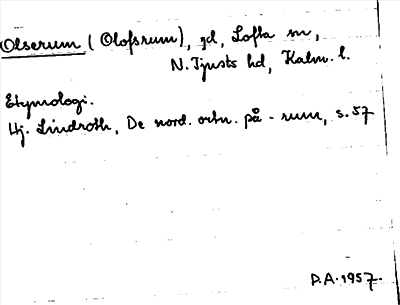 Olserum (Olofsrum), gd, Lofta sn,
N. Tjusts hd, Kalm. l.
Etymologi.
Hj. Lindroth, De nord. ortn. på -rum, s. 57
P.A. 1957.